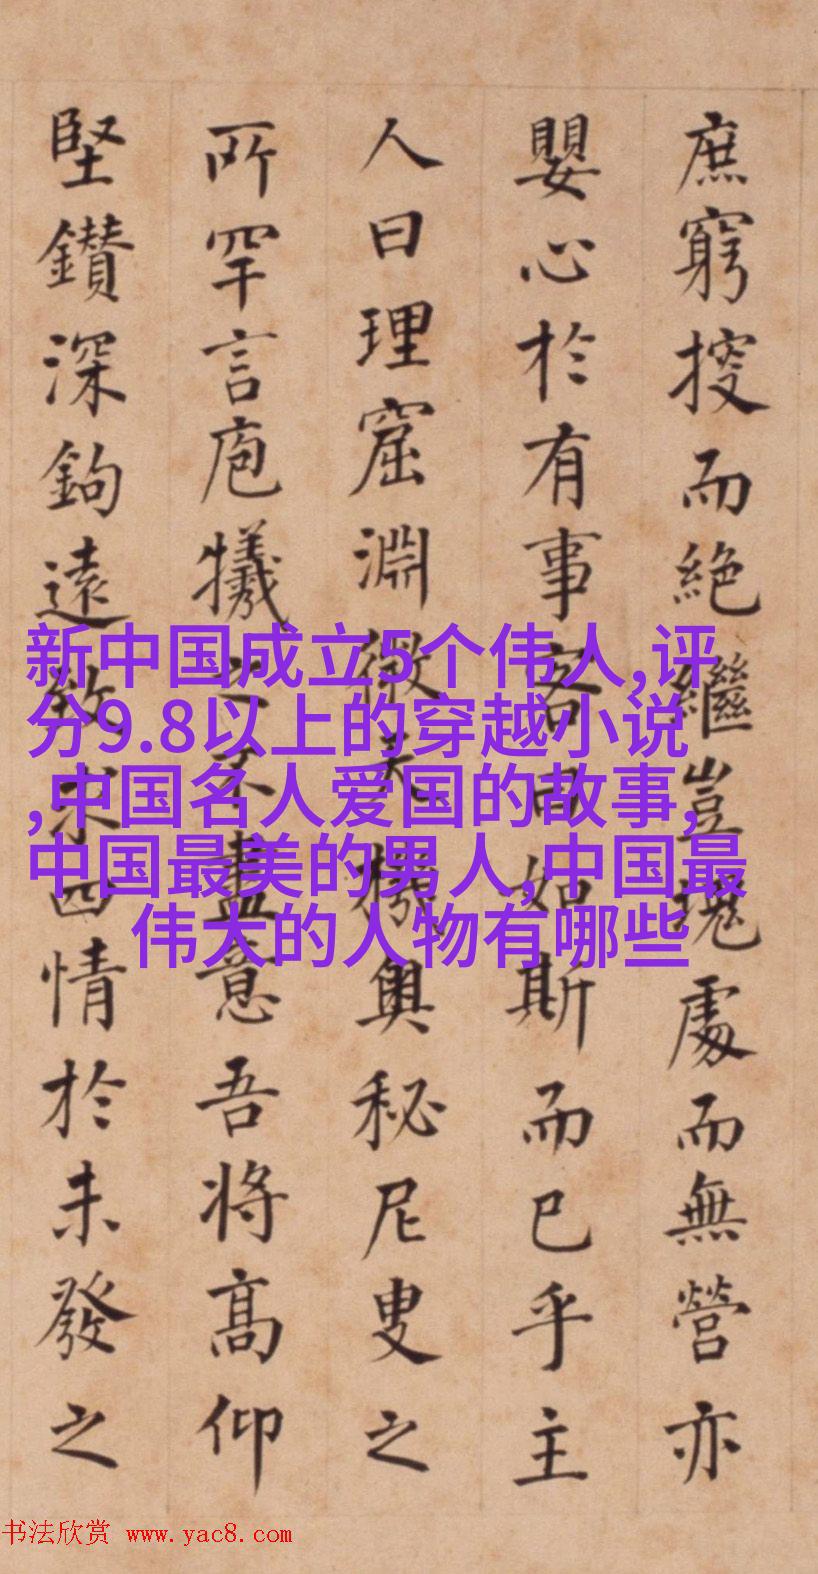 庶窮搜而絕繼豈塊處而無營亦
嬰心於有事客曰如斯而已乎主
人曰理窟淵微天機奧秘尼叟之
所罕言庖犧之不盡意吾將高仰
堅鑽深鉤遠致求四情於未發之
新中国成立5个伟人,评
分9.8以上的穿越小说
,中国名人爱国的故事,
中国最美的男人,中国最
伟大的人物有哪些
书法欣赏 www.yac8.com